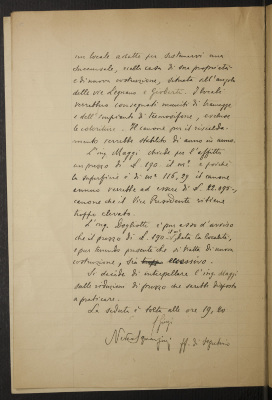 un locale adatto per sistemarvi una
, nella casa di sua proprietà
e di nuova costruzione, situata all'angolo
delle vie Legnano e Gioberti. I locali
verrebbero consegnati muniti di tramezze
e dell'impianto di termosifone, escluse
le coloriture. Il canone per il riscalda-
mento verrebbe stabilito di anno in anno.
L'ing. Maggi, chiede per l'affitto
un prezzo di L. 190 il m² e poiché
la superficie è di m² 116,29 il canone
annuo verrebbe ad essere di L. 22.095,-
canone che il Vice Presidente ritiene
troppo elevato.
L'ing. Dogliotti è pure d'avviso
che il prezzo di L. 190 data la località,
e pur tenendo presente che si tratta di nuova
costruzione, sia eccessivo.
Si decide di interpellare l'ing. Maggi
sulle riduzioni di prezzo che sarebbe disposto
a praticare.
La seduta è tolta alle ore 19,20
ff. di Segretario